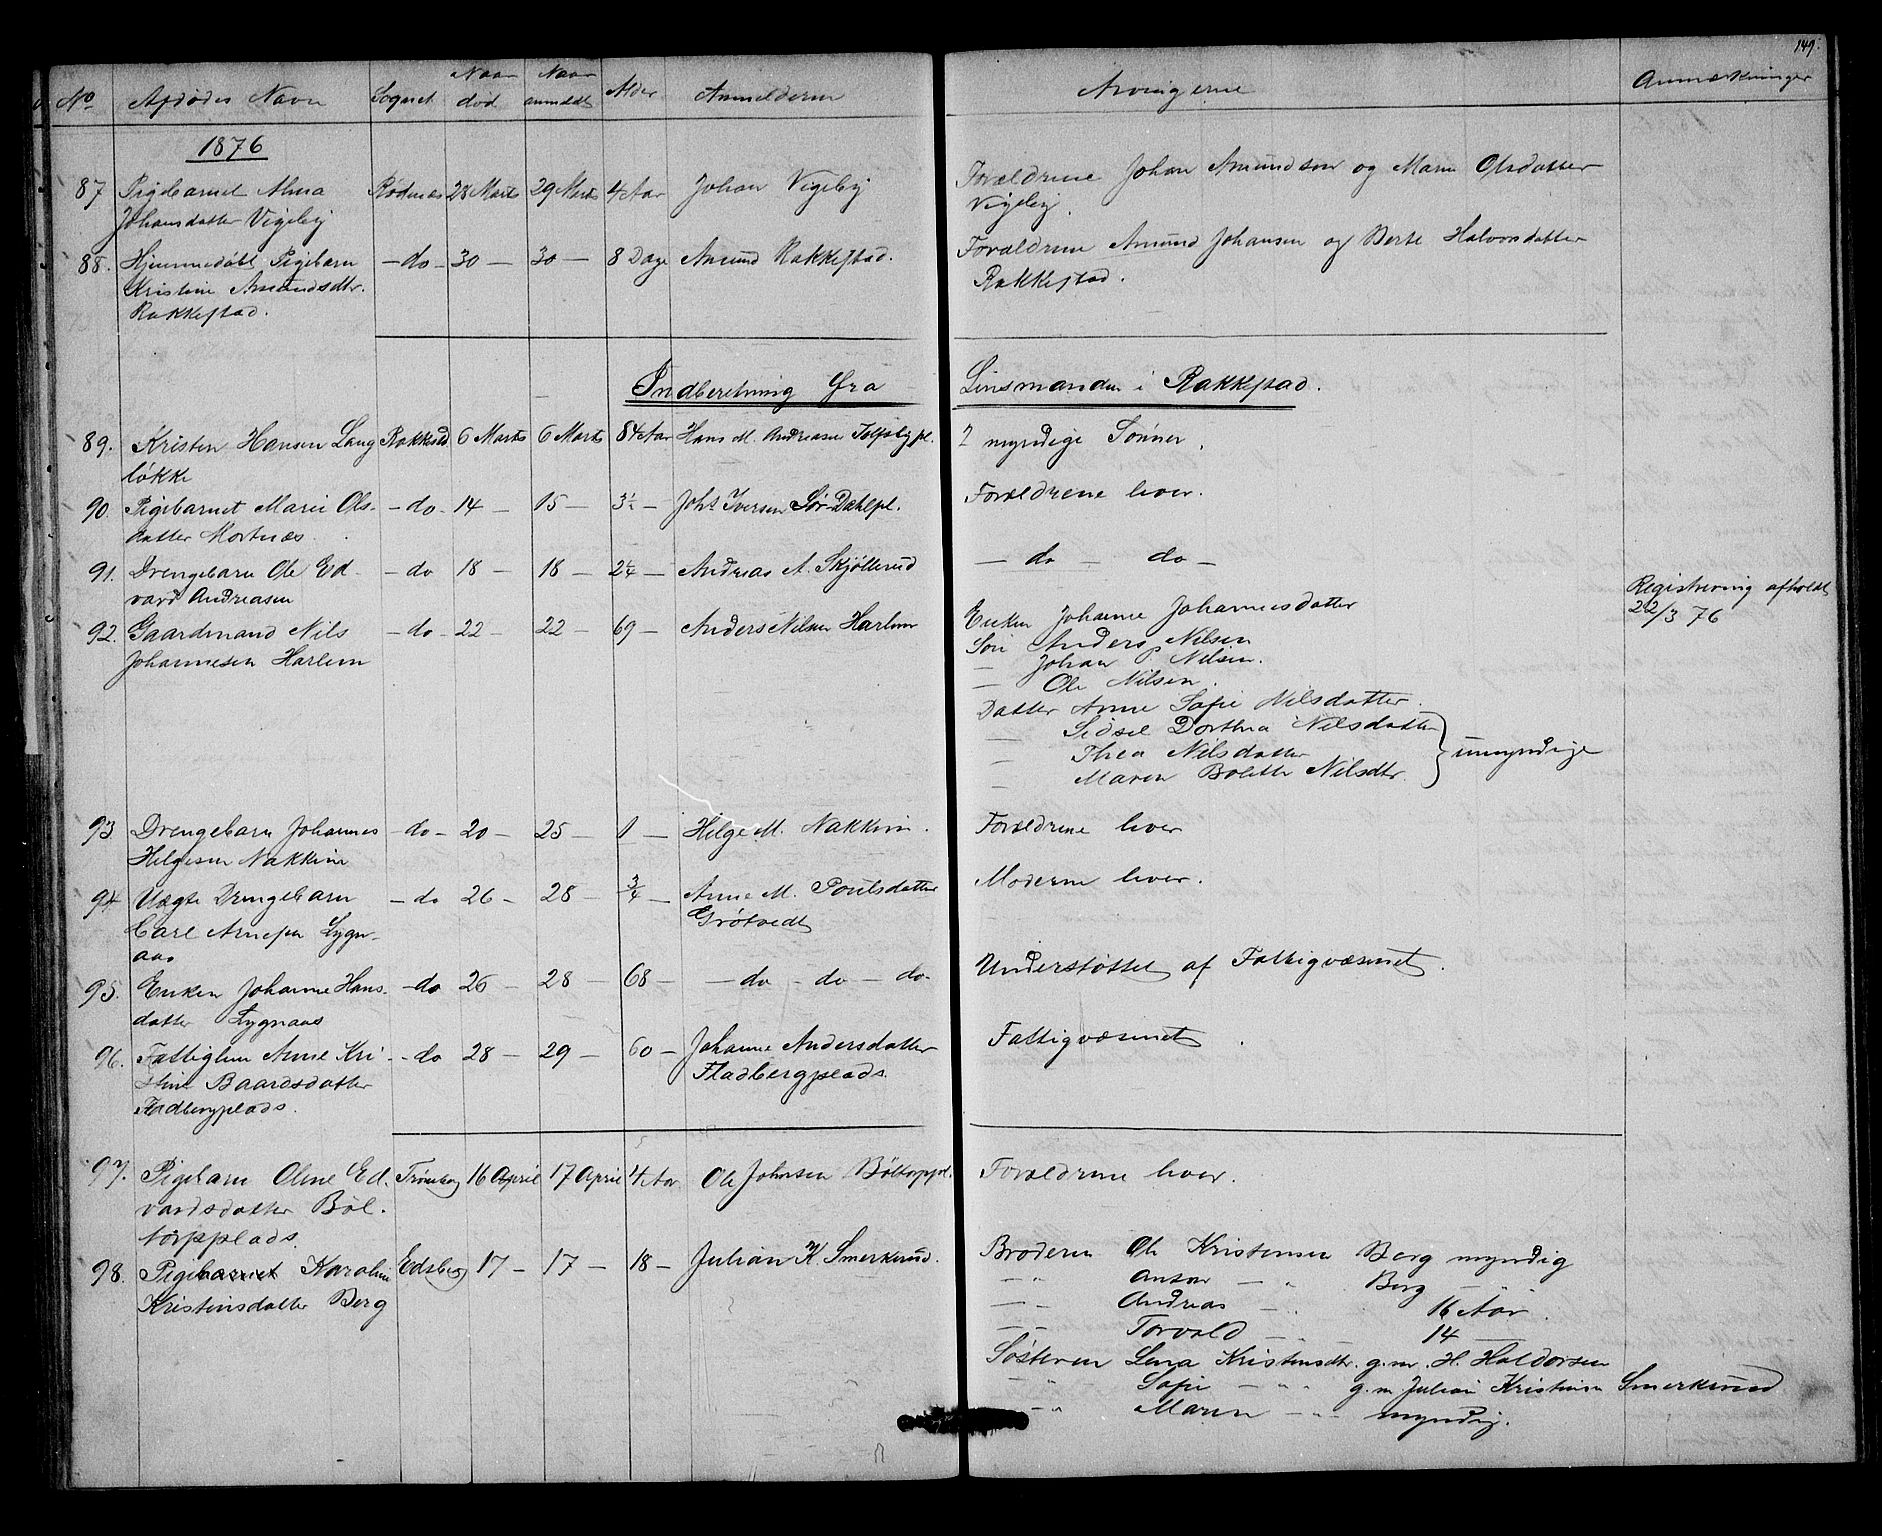 149.
No Afdødes Navn Sognet Naar død Naar anmeldt Alder Anmelderne Arvingerne Anmærkninger
1876
87 Pigebarnet Alma Rødnæs 28 Marts 29 Marts 4 Aar Johan Vigeby Forældrene Johan Amundsen og Maren Olsdatter
Johansdatter Vigeby Vigeby.
88. Hjemmedøbt Pigebarn - do - 30 - 30 - 8 Dage Amund Rakkestad. Forældrene Amund Johansen og Berte Halvorsdatter
Kristine Amundsdtr. Rakkestad.
Rakkestad.
Indberetning fra Lensmanden i Rakkestad.
89. Kristen Hansen Lang Rakkestd 6 Marts 6 Marts 84 Aar Hans M. Andreasen Tolpsbypl. 2 myndige Sønner.
løkke
90. Pigebarnet Marie Ols- - do - 14 - 15 - 3½ - Johs Iversen Sør-Dahlpl. Forældrene lever.
datter Mortnæs.
91. Drengebarn Ole Ed- - do 18 - 18 - 2¼ - Andreas A. Skjøllerud - do - do -
vard Andreasen
92. Gaardmand Nils - do - 22 - 22 - 69 - Anders Nilsen Harlem Enken Johanne Johannesdatter Registrering afholdt
Johannesen Harlem Søn Anders Nilsen 22/3 76
- Johan P Nilsen.
- Ole Nilsen.
Datter Anne Sofie Nilsdatter.
- Sidsel Dorthea Nilsdatter
- Thea Nilsdatter } umyndige
- Maren Bolette Nilsdtr.
93 Drengebarn Johannes - do - 20 - 25 - 1 - Helge M. Nakkim. Forældrene lever
Helgesen Nakkim
94 Uægte Drengebarn - do 26 - 28 - ¾ - Anne M. Poulsdatter Moderen lever.
Carl Arnesen Lygn- Grøtvedt
aas
95. Enken Johanne Hans- - do 26 - 28 - 68 - - do - do - do - Understøttet af Fattigvæsenet.
datter Lygnaas
96. Fattiglem Anne Kri - do 28 - 29 - 60 - Johanne Andersdatter Fattigvæsenet.
stine Baardsdatter Fladbergplads.
Fladbergplads.
97. Pigebarn Oline Ed- Trømborg 16 April 17 April 4 Aar Ole Johnsen Bøltorppl. Forældrene lever.
vardsdatter Bøl-
torpplads.
98. Pigebarnet Karoline Edsberg 17 - 17 - 18 - Julian K. Smerkerud. Broderen Ole Kristensen Berg myndig
Kristensdatter Berg - " Anton - " Berg -
- - Andreas - " 16 Aar.
- - Torvald - " 14 -
Søsteren Lena Kristensdtr. g.m. H. Haldorsen
- " Sofie - " g.m Julian Kristensen Smerkerud
- " Maren - " myndig.